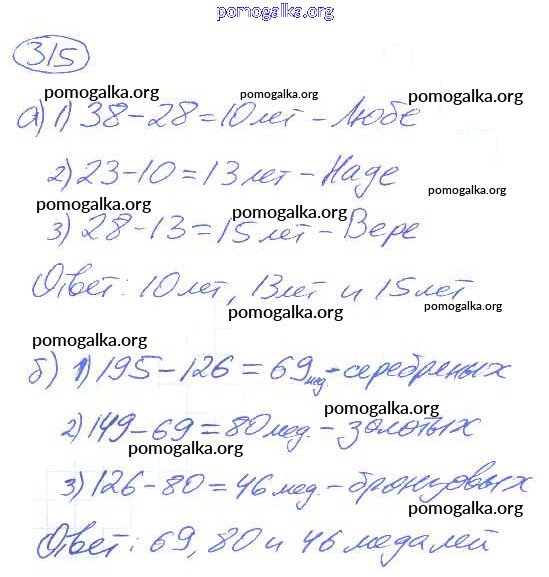 pomogalka.org
315
pomogalka.org pomogalka.org pomogalka.org
а) 1) 38-28=10лет - Любе
2) 23-10=13лет - Наде
pomogalka.org
pomogalka.org pomogalka.org
3) 28-13=15лет - Вере
Ответ: 10лет, 13лет и 15лет
pomogalka.org
pomogalka.org
б) 1) 195-126=69мед. - серебреных
pomogalka.org
2) 149-69=80мед. - золотых
pomogalka.org
pomogalka.org
3) 126-80=46мед. - бронзовых
pomogalka.org
Ответ: 69, 80 и 46 медалей